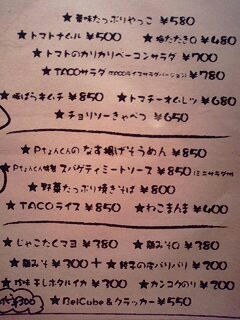 ★ 薬味たっぷりやっこ ¥580
★ トマトナムル ¥500 ★ 梅たたきO ¥480
★ トマトのカリカリベーコンサラダ ¥700
★ TACOサラダ (TACOライスサラダバージョン) ¥780
★ 豚ばらキムチ ¥850 ★ トマチーオムレツ ¥680
★ チョリソーきゃべつ ¥650
★ Pちょんくんの なす揚げそうめん ¥850
★ Pちょんくん特製 スパゲティミートソース ¥850 (ミニサラダ付)
★ 野菜たっぷり焼きそば ¥800
★ TACOライス ¥850 ★ ねこまんま ¥400
★ じゃこたくマヨ ¥380 ★ 鶏みそO ¥380
★ 鶏みそ ¥300 + ★ 餃子の皮パリパリ ¥200
★ 珍味 干しホタルイカ ¥300 ★ カンコクのり ¥200
¥300 ★ BelCube & クラッカー ¥550